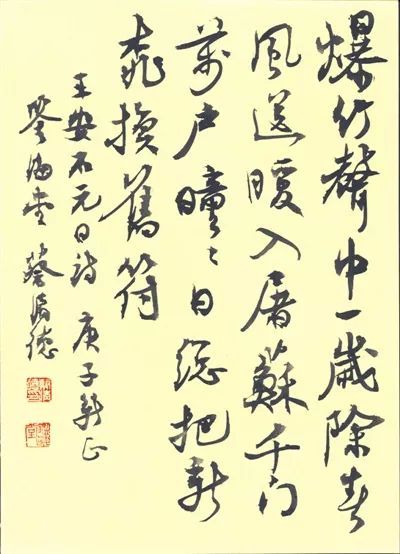 爆竹聲中一歲除春
風送暖入屠蘇千門
萬戶曈々日總把新
桃換舊符
王安石元日詩 庚子新正
海堂 蔡清德